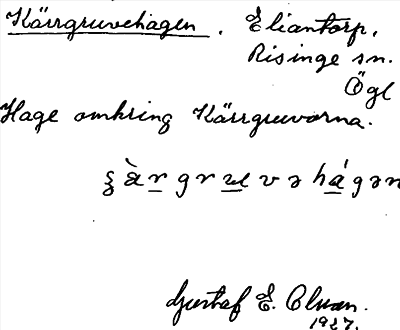 Kärrgruvehagen. Eliantorp,
Risinge sn.
Ögl
Hage omkring Kärrgruvorna.
Gustaf E. Olsson.
1927.